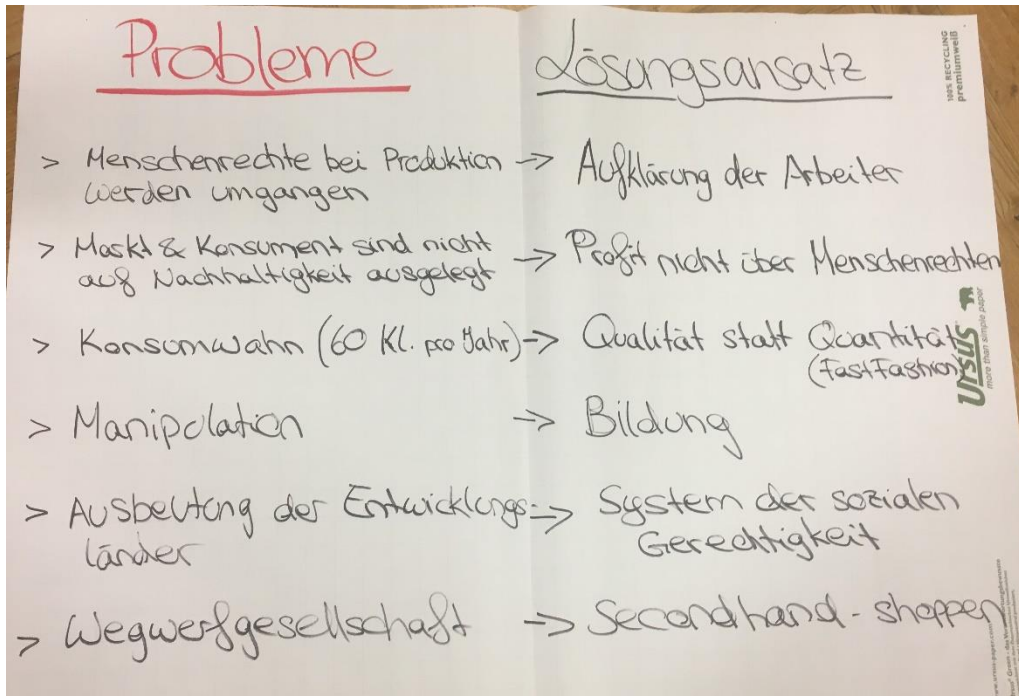 Probleme
Lösungsansatz
> Menschenrechte bei Produktion
werden umgangen
-> Aufklärung der Arbeiter
> Maskt & Konsument sind nicht
auf Nachhaltigkeit ausgelegt
-> Profit nicht über Menschenrechten
> Konsumwahn (60 Kl. pro Jahr)
-> Qualität statt Quantität
(FastFashion)
> Manipulation
-> Bildung
> Ausbeutung der Entwicklungs-
länder
-> System der sozialen
Gerechtigkeit
> Wegwerfgesellschaft
-> Secondhand-shoppen
100% RECYCLING
premiumweiß
Ursus
more than simple paper